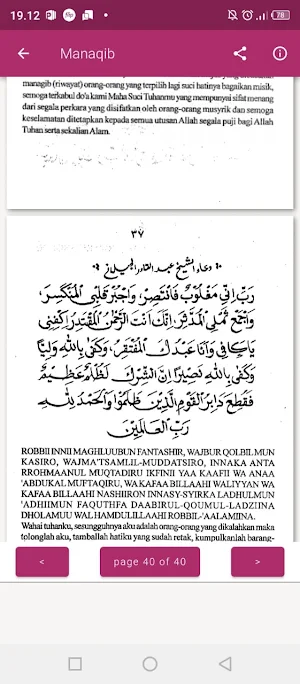 19.12
78
Manaqib
manaqib (riwayat) orang-orang yang terpilih lagi suci hatinya bagaikan misik,
semoga terkabul do'a kami Maha Suci Tuhanmu yang mempunyai sifat menang
dari segala perkara yang disifatkan oleh orang-orang musyrik dan semoga
keselamatan ditetapkan kepada semua utusan Allah segala puji bagi Allah
Tuhan serta sekalian Alam.
٣٧
دعاء الشيخ عبد القادر الجيلاني
رَبِّ اِنِّي مَغْلُوْبٌ فَانْتَصِرْ، وَاجْبُرْ قَلْبِي الْمُنْكَسِرَ،
وَاجْمَعْ شَمْلِي الْمُدَّثِرَ، اِنَّكَ اَنْتَ الرَّحْمٰنُ الْمُقْتَدِرُ اِكْفِنِي
يَاكَافِي وَاَنَا عَبْدُكَ الْمُفْتَقِرُ، وَكَفٰى بِاللهِ وَلِيًّا
وَكَفٰى بِاللهِ نَصِيْرًا اِنَّ الشِّرْكَ لَظُلْمٌ عَظِيْمٌ
فَقُطِعَ دَابِرُ الْقَوْمِ الَّذِيْنَ ظَلَمُوْا وَالْحَمْدُ لِلّٰهِ
رَبِّ الْعَالَمِيْنَ
ROBBII INNII MAGHLUUBUN FANTASHIR, WAJBUR QOLBIL MUN
KASIRO, WAJMA'TSAMLIL-MUDDATSIRO, INNAKA ANTA
RROHMAANUL MUQTADIRU IKFINII YAA KAAFII WA ANAA
'ABDUKAL MUFTAQIRU, WA KAFAA BILLAAHI WALIYYAN WA
KAFAA BILLAAHI NASHIIRON INNASY-SYIRKA LADHULMUN
'ADHIIMUN FAQUTHFA DAABIRUL-QOUMUL-LADZIINA
DHOLAMUU WAL HAMDULILLAAHI ROBBIL-'AALAMIINA.
Wahai tuhanku, sesungguhnya aku adalah orang-orang yang dikalahkan maka
tolonglah aku, tamballah hatiku yang sudah retak, kumpulkanlah barang-
<
page 40 of 40
>